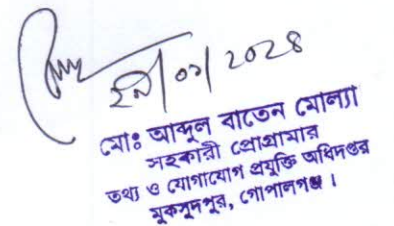 ০১ ২০২৪
মোঃ আব্দুল বাতেন মোল্যা
সহকারী প্রোগ্রামার
তথ্য ও যোগাযোগ প্রযুক্তি অধিদপ্তর
মুকসুদপুর, গোপালগঞ্জ।